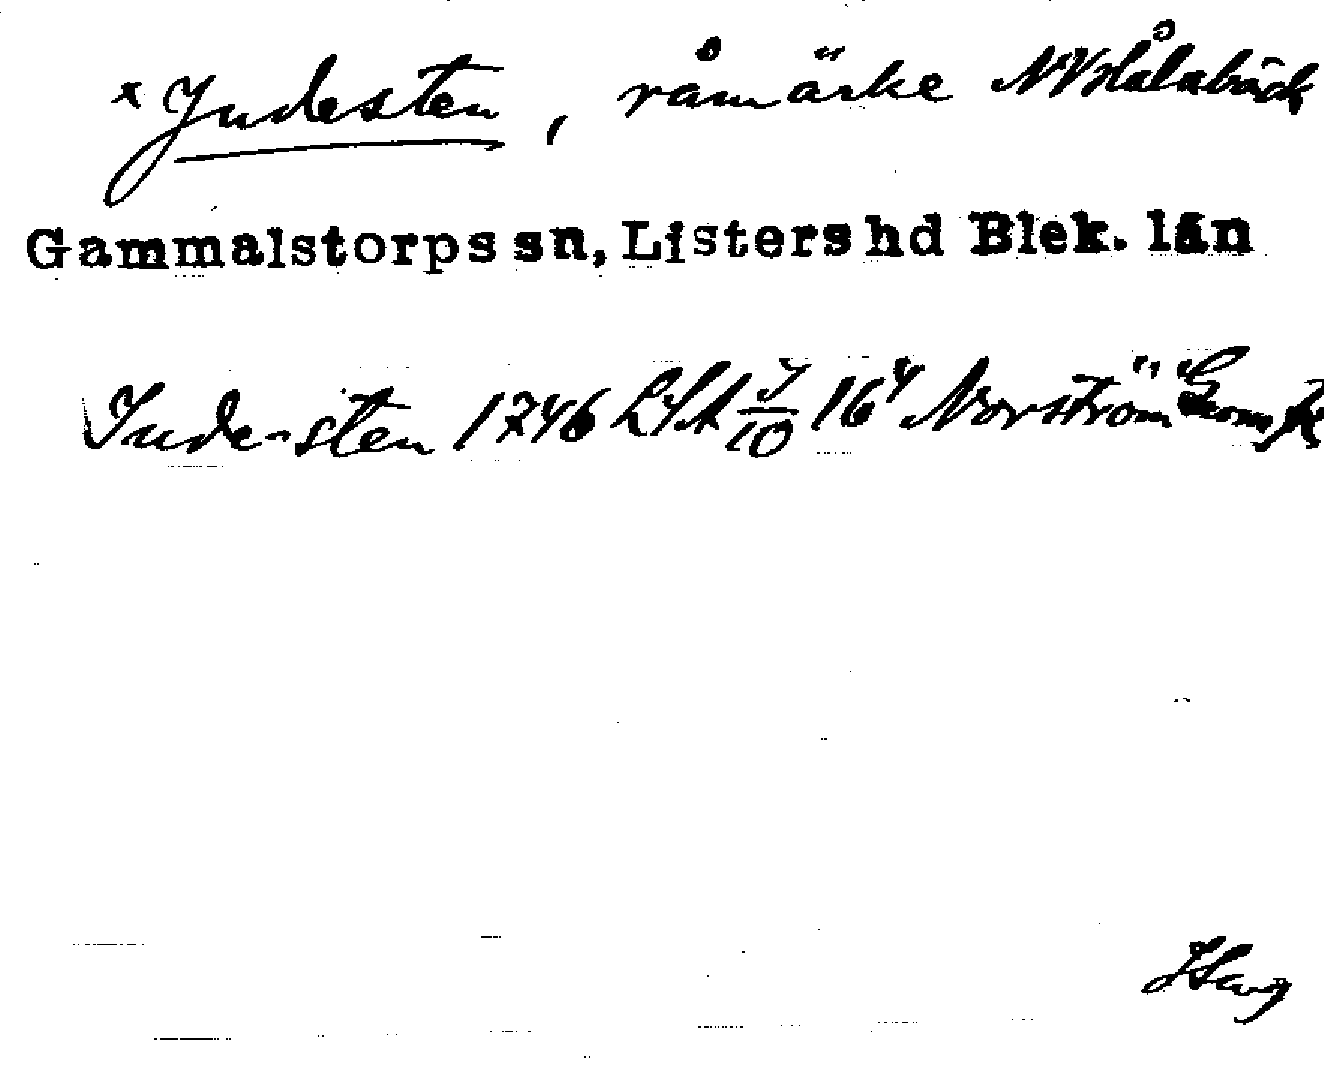 × Judesten, råmärke NV Hålabäck
Gammalstorps sn, Listers hd Blek. län
Jude-sten 1746 LSA 7/10 16⁴ Norström